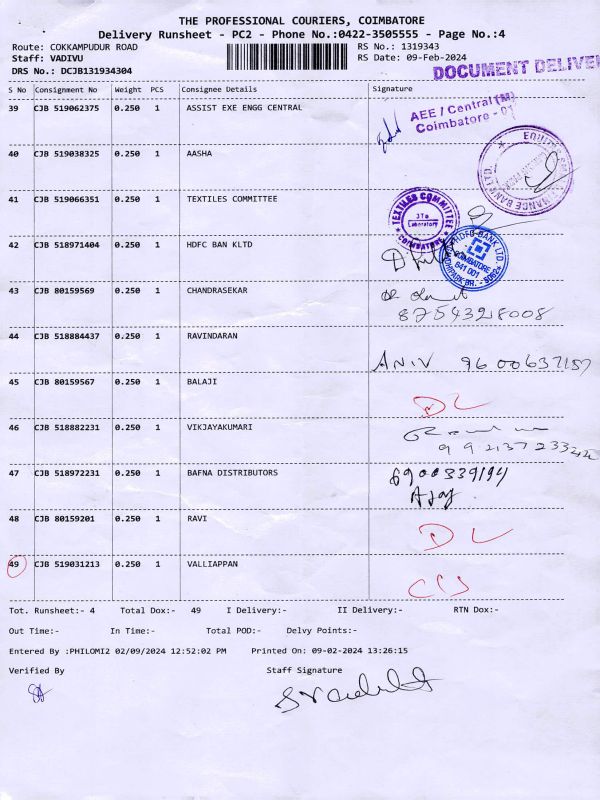 THE PROFESSIONAL COURIERS, COIMBATORE
Delivery Runsheet - PC2 - Phone No.:0422-3505555 - Page No.:4
Route: COKKAMPUDUR ROAD RS No.: 1319343
Staff: VADIVU RS Date: 09-Feb-2024
DRS No.: DCJB131934304 DOCUMENT DELIVE
S No Consignment No Weight PCS Consignee Details Signature
39 CJB 519062375 0.250 1 ASSIST EXE ENGG CENTRAL
AEE / Central (M)
Coimbatore - 01
40 CJB 519038325 0.250 1 AASHA
41 CJB 519066351 0.250 1 TEXTILES COMMITTEE
TEXTILES COMMITTEE
Laboratory
COIMBATORE
42 CJB 518971404 0.250 1 HDFC BAN KLTD
HDFC BANK LTD.
COIMBATORE
641 001
43 CJB 80159569 0.250 1 CHANDRASEKAR
8754328008
44 CJB 518884437 0.250 1 RAVINDARAN
ANIV 9600637157
45 CJB 80159567 0.250 1 BALAJI
DL
46 CJB 518882231 0.250 1 VIKJAYAKUMARI
47 CJB 518972231 0.250 1 BAFNA DISTRIBUTORS
6900339194
Ajay
48 CJB 80159201 0.250 1 RAVI
DL
49 CJB 519031213 0.250 1 VALLIAPPAN
Tot. Runsheet:- 4 Total Dox:- 49 I Delivery:- II Delivery:- RTN Dox:-
Out Time:- In Time:- Total POD:- Delvy Points:-
Entered By :PHILOMI2 02/09/2024 12:52:02 PM Printed On: 09-02-2024 13:26:15
Verified By Staff Signature